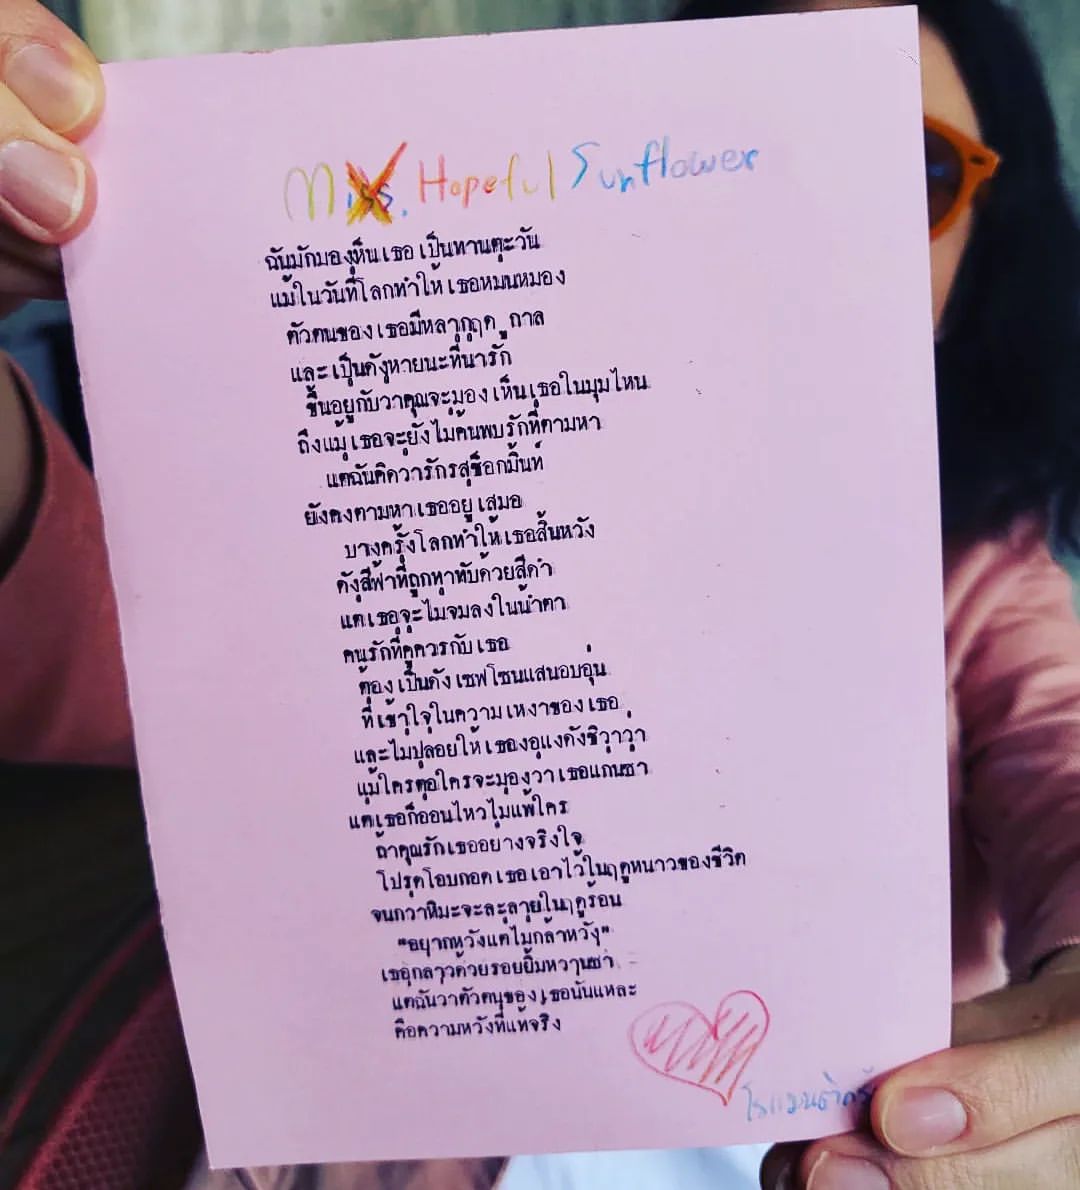 Miss. Hopeful Sunflower
ฉันมักมองเห็นเธอเป็นทานตะวัน
แม้ในวันที่โลกทำให้เธอหม่นหมอง
ตัวตนของเธอมีหลากฤดูกาล
และเป็นดั่งหายนะที่น่ารัก
ขึ้นอยู่กับว่าคุณจะมองเห็นเธอในมุมไหน
ถึงแม้เธอจะยังไม่ค้นพบรักที่ตามหา
แต่ฉันคิดว่ารักรสช็อกมิ้นท์
ยังคงตามหาเธออยู่เสมอ
บางครั้งโลกทำให้เธอสิ้นหวัง
ดั่งสีฟ้าที่ถูกทาทับด้วยสีดำ
แต่เธอจะไม่จมลงในน้ำตา
คนรักที่คู่ควรกับเธอ
ต้องเป็นดั่งเซฟโซนแสนอบอุ่น
ที่เข้าใจในความเหงาของเธอ
และไม่ปล่อยให้เธองอแงดั่งชิวาว่า
แม้ใครต่อใครจะมองว่าเธอแก่นซ่า
แต่เธอก็อ่อนไหวไม่แพ้ใคร
ถ้าคุณรักเธออย่างจริงใจ
โปรดโอบกอดเธอเอาไว้ในฤดูหนาวของชีวิต
จนกว่าหิมะจะละลายในฤดูร้อน
"อยากหวังแต่ไม่กล้าหวัง"
เธอกล่าวด้วยรอยยิ้มหวานซ่า
แต่ฉันว่าตัวตนของเธอนั่นแหละ
คือความหวังที่แท้จริง